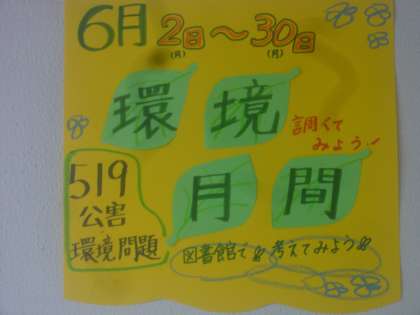 6月2日～30日
(月) (月)
環境
調べて
みよう
月間
519
公害
環境問題
図書館で考えてみよう